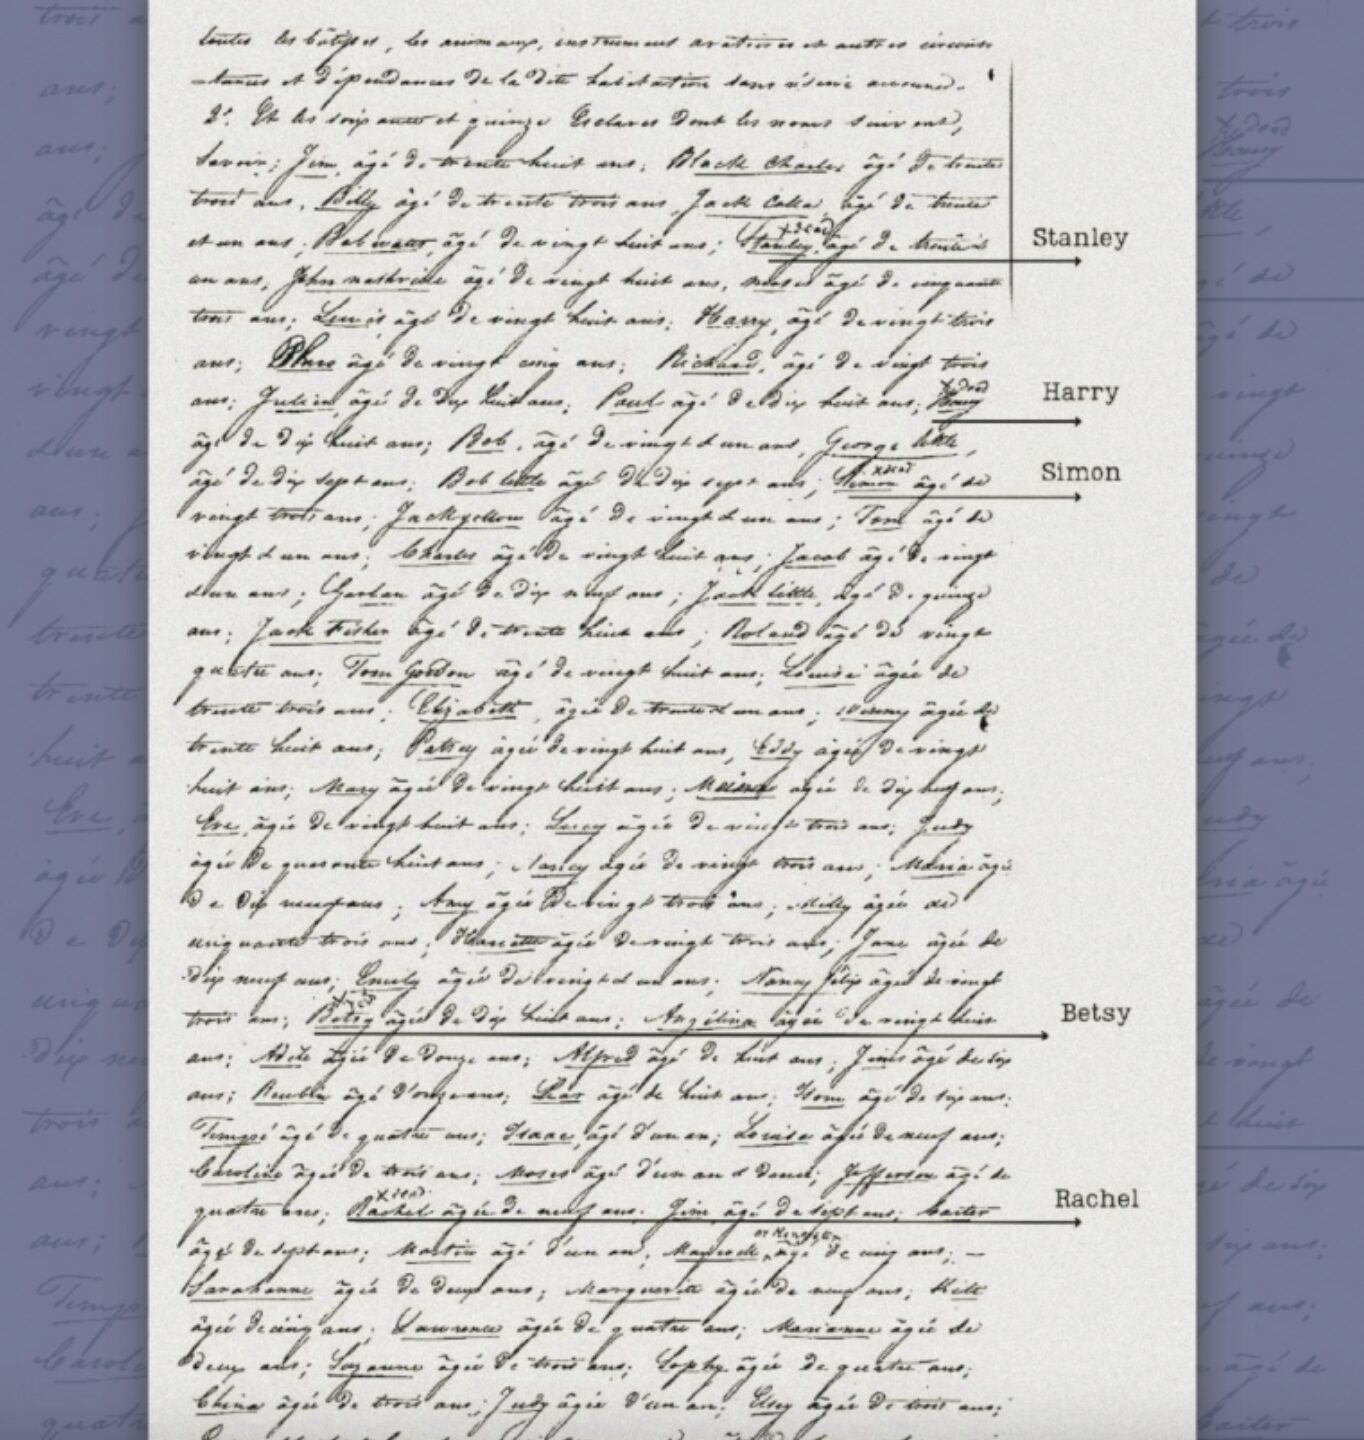 toutes les bâtisses, les animaux, instrumens aratoires et autres circons
-tances et dépendances de la dite habitation sans réserve aucune.
2º. Et les soixante et quinze Esclaves dont les noms suivent,
Savoir; Jim, âgé de trente huit ans; Black Charles, âgé de trente
trois ans, Billy âgé de trente trois ans, Jack âgé de trente
et un ans; Bob âgé de vingt huit ans; Stanley, âgé de trente et
x dead
Stanley
un ans, John nashville âgé de vingt huit ans, moses âgé de cinquante
trois ans; Lewis âgé de vingt huit ans; Harry, âgé de vingt trois
ans; âgé de vingt cinq ans; Richard, âgé de vingt trois
ans; Julien, âgé de dix huit ans; Paul âgé de dix huit ans;
x dead
Harry
âgé de dix huit ans; Bob, âgé de vingt et un ans, George little,
âgé de dix sept ans; Bob little âgé de dix sept ans; Simon âgé de
x dead
Simon
vingt trois ans, Jack yellow âgé de vingt et un ans; Tom âgé de
vingt et un ans; Charles âgé de vingt huit ans; Jacob âgé de vingt
et un ans; âgé de dix neuf ans; Jack little, âgé de quinze
ans; Jack Fisher âgé de trente huit ans; Roland âgé de vingt
quatre ans; Tom Gordon âgé de vingt huit ans; Louise âgée de
trente trois ans; Elizabeth, âgée de trente et un ans; âgée de
trente huit ans; Patsey âgée de vingt huit ans, Eddy âgée de vingt
huit ans; Mary âgée de vingt huit ans; âgée de dix neuf ans;
Eve, âgée de vingt huit ans; Lucy âgée de vingt trois ans; Judy
âgée de quarante huit ans; Nancy âgée de vingt trois ans; Maria âgée
de dix neuf ans; Amy âgée de vingt trois ans; Milly âgée de
cinquante trois ans; Henriette âgée de vingt trois ans; Jane âgée de
dix neuf ans; Emily âgée de vingt et un ans; Nancy félix âgée de vingt
trois ans; Betsy âgée de dix huit ans; Angélina âgée de vingt huit
Betsy
ans; Adele âgée de douze ans; Alfred âgé de huit ans; âgé de six
ans; Reubin âgé d'onze ans; âgé de huit ans; âgé de six ans;
Tempsé âgé de quatre ans; Isaac, âgé d'un an; Louisa âgée de neuf ans;
Caroline âgée de trois ans; Moses âgé d'un an et demi; Jefferson âgé de
quatre ans; Rachel âgée de neuf ans; Jim, âgé de sept ans; Carter
x dead
Rachel
âgé de sept ans; Martin âgé d'un an; âgé de cinq ans; —
Sarahanne âgée de deux ans; Marguerite âgée de neuf ans;
âgée de cinq ans; Lawrence âgée de quatre ans; Marianne âgée de
deux ans; Suzanne âgée de trois ans; Sophy âgée de quatre ans;
China âgée de trois ans; Judy âgée d'un an; Elsey âgée de trois ans;